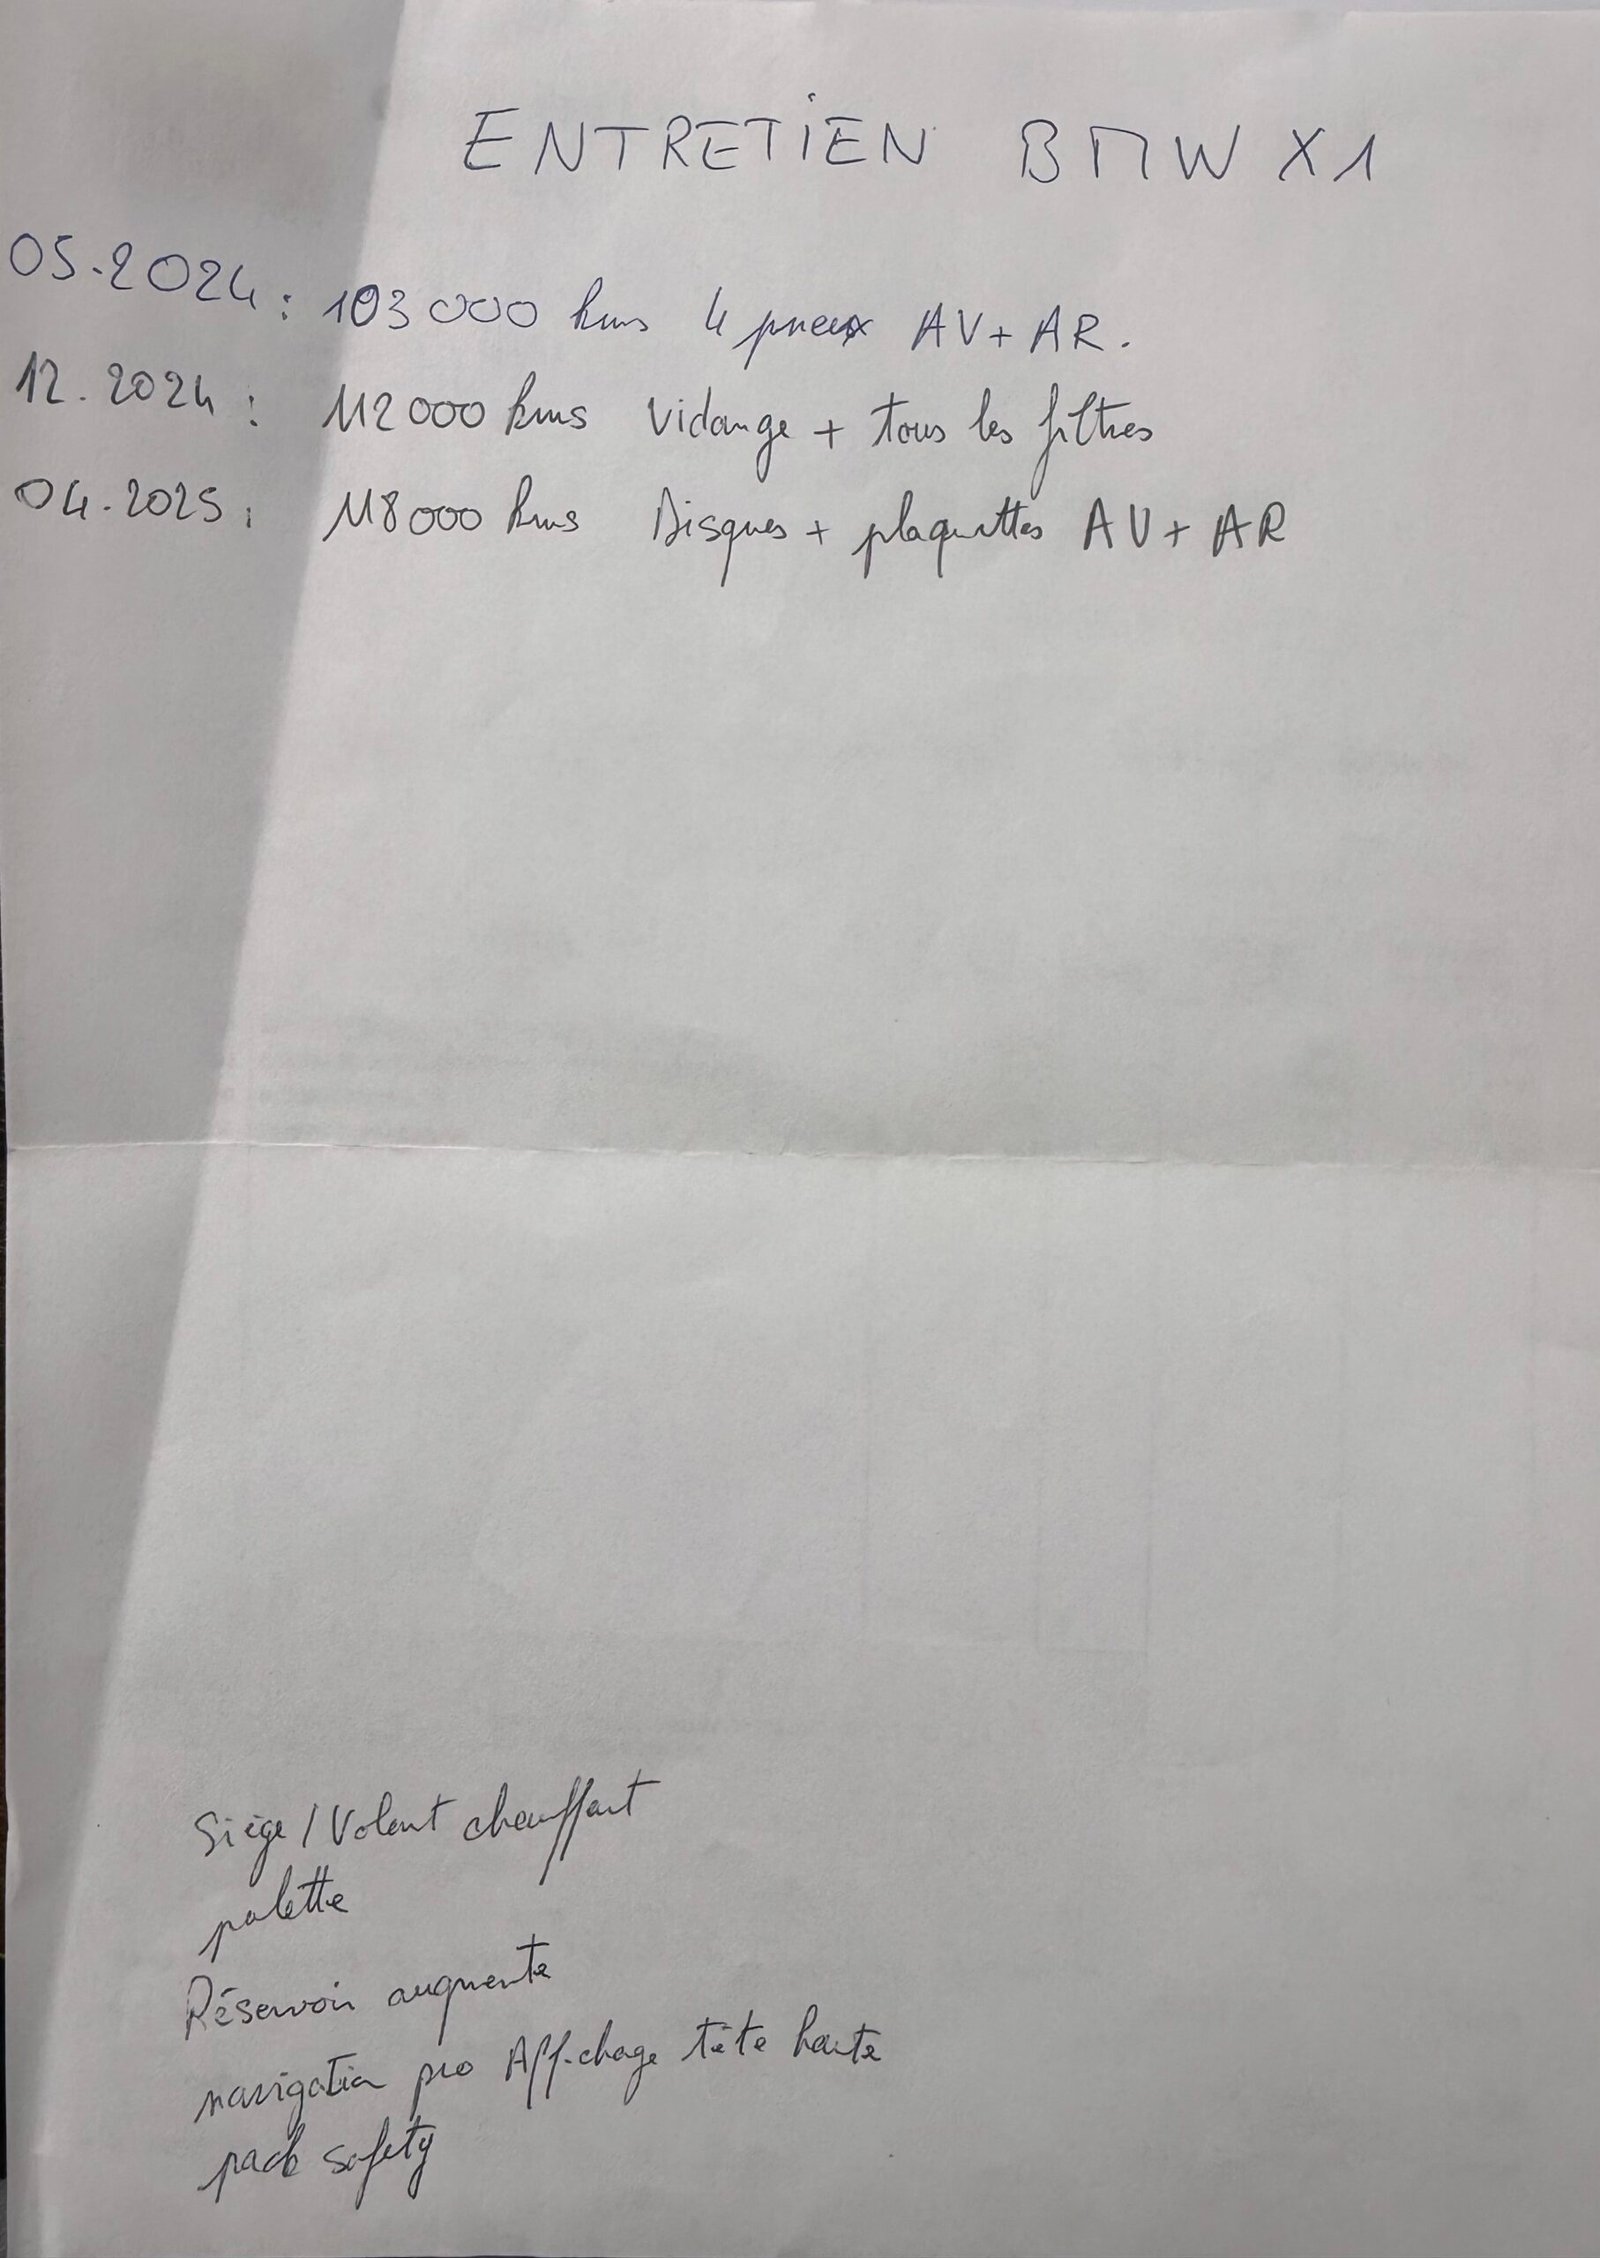 ENTRETIEN BMW X1
05.2024: 103 000 kms 4 pneux AV + AR.
12.2024: 112 000 kms Vidange + tous les filtres
04.2025: 118 000 kms Disques + plaquettes AV + AR
Siège / Volant chauffant
palette
Réservoir augmente
navigation pro Affichage tête haute
pack safety